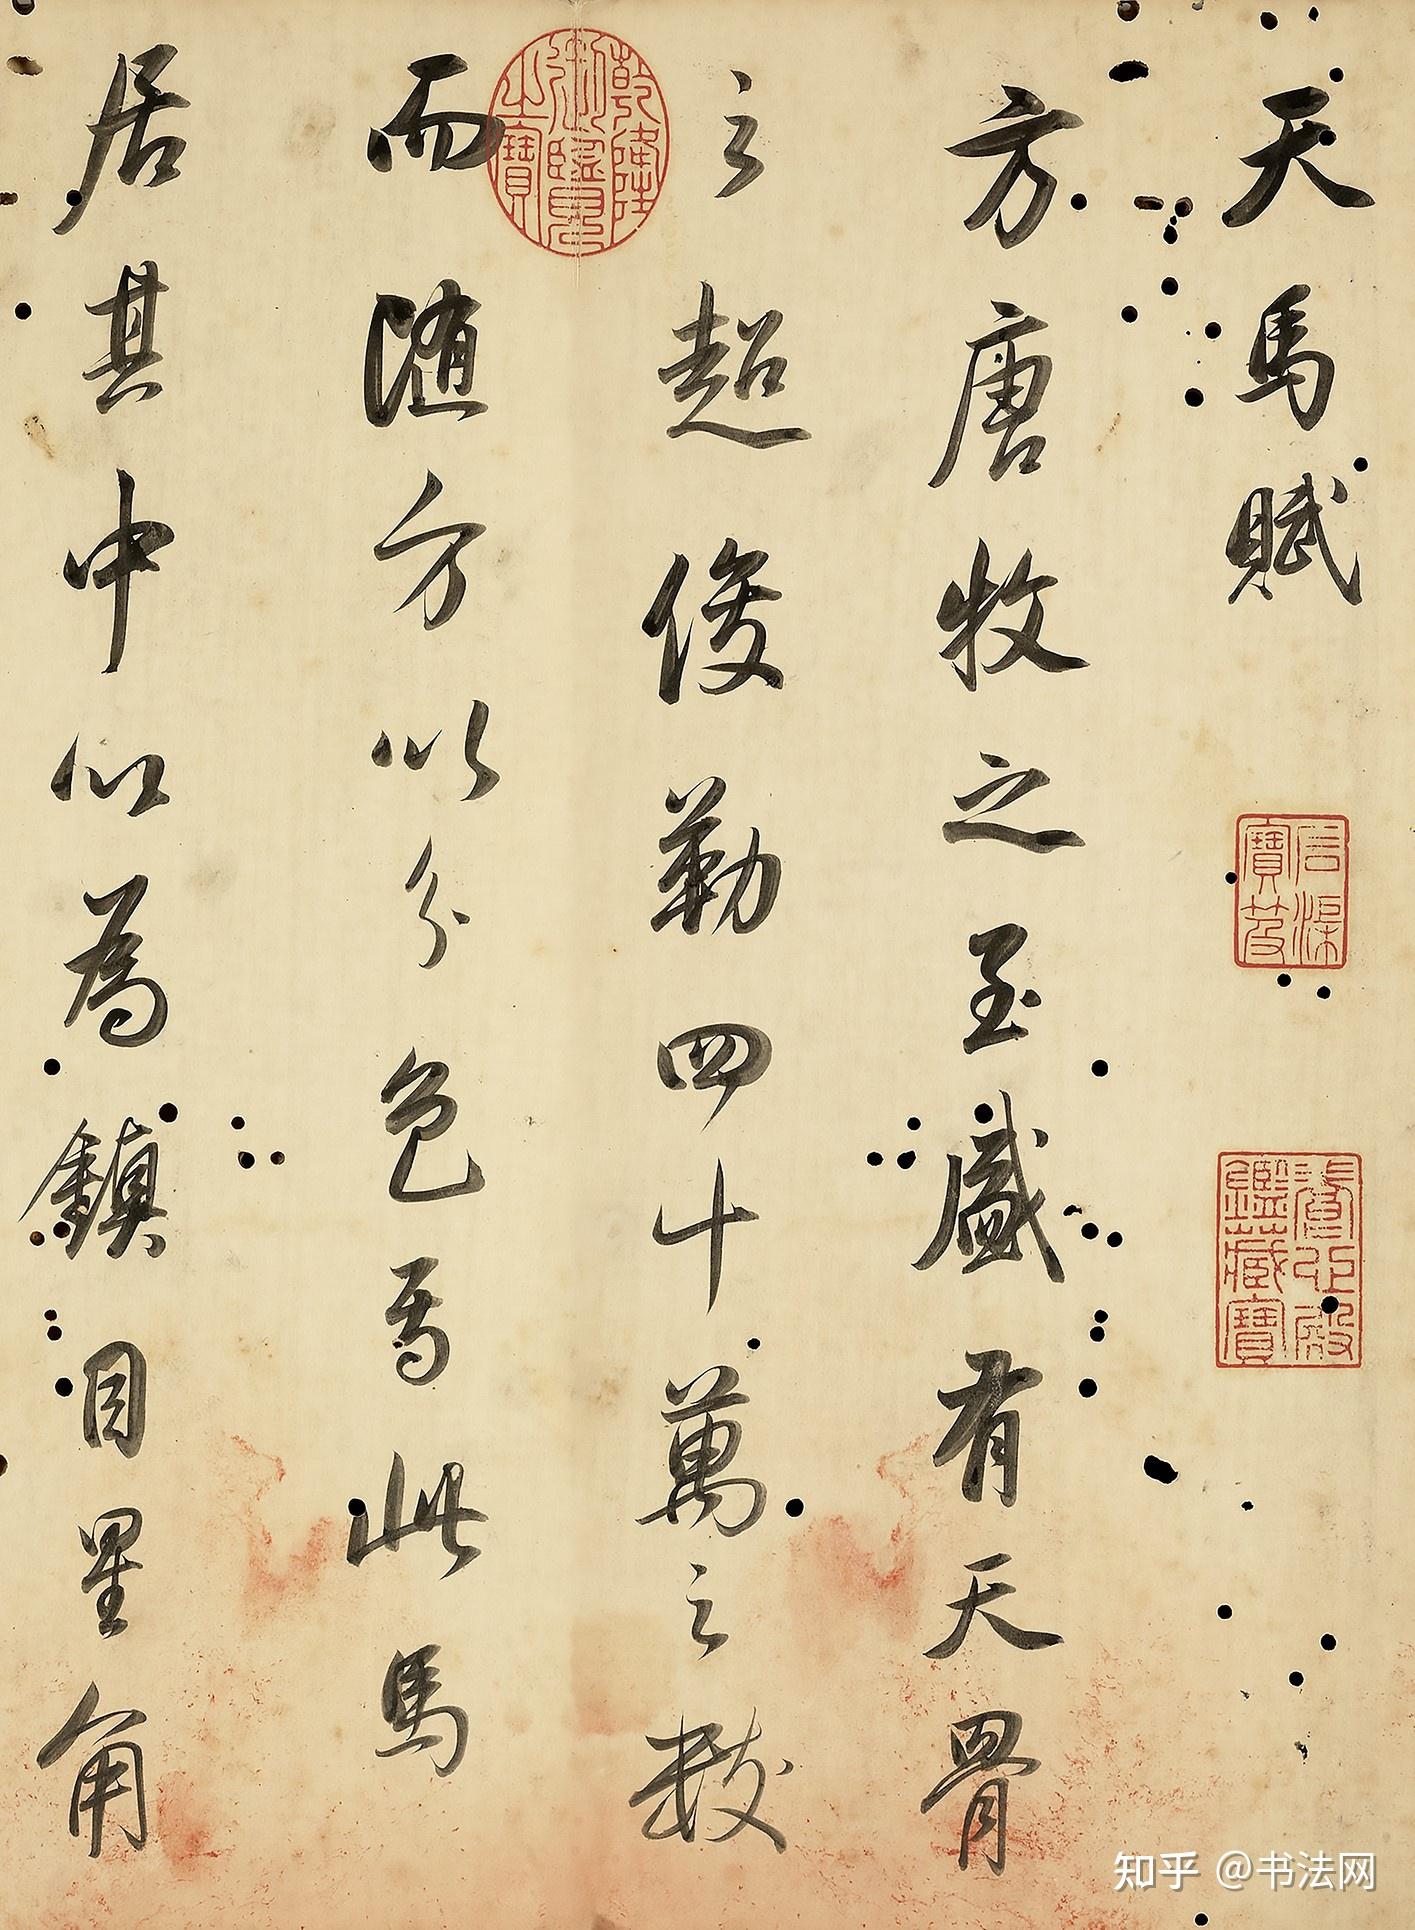 天馬賦
石渠寶笈
養心殿鑑藏寶
方唐牧之至盛有天骨
之超俊勒四十萬之數
乾隆御覽之寶
而随方以分色焉此馬
居其中以為鎮目星角
知乎 @书法网